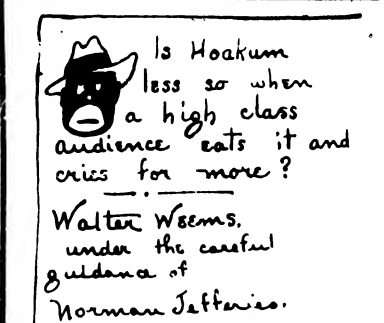 Is Hoakum
less so when
a high class
audience eats it and
cries for more?
Walter Weems.
under the careful
guidance of
Norman Jefferies.